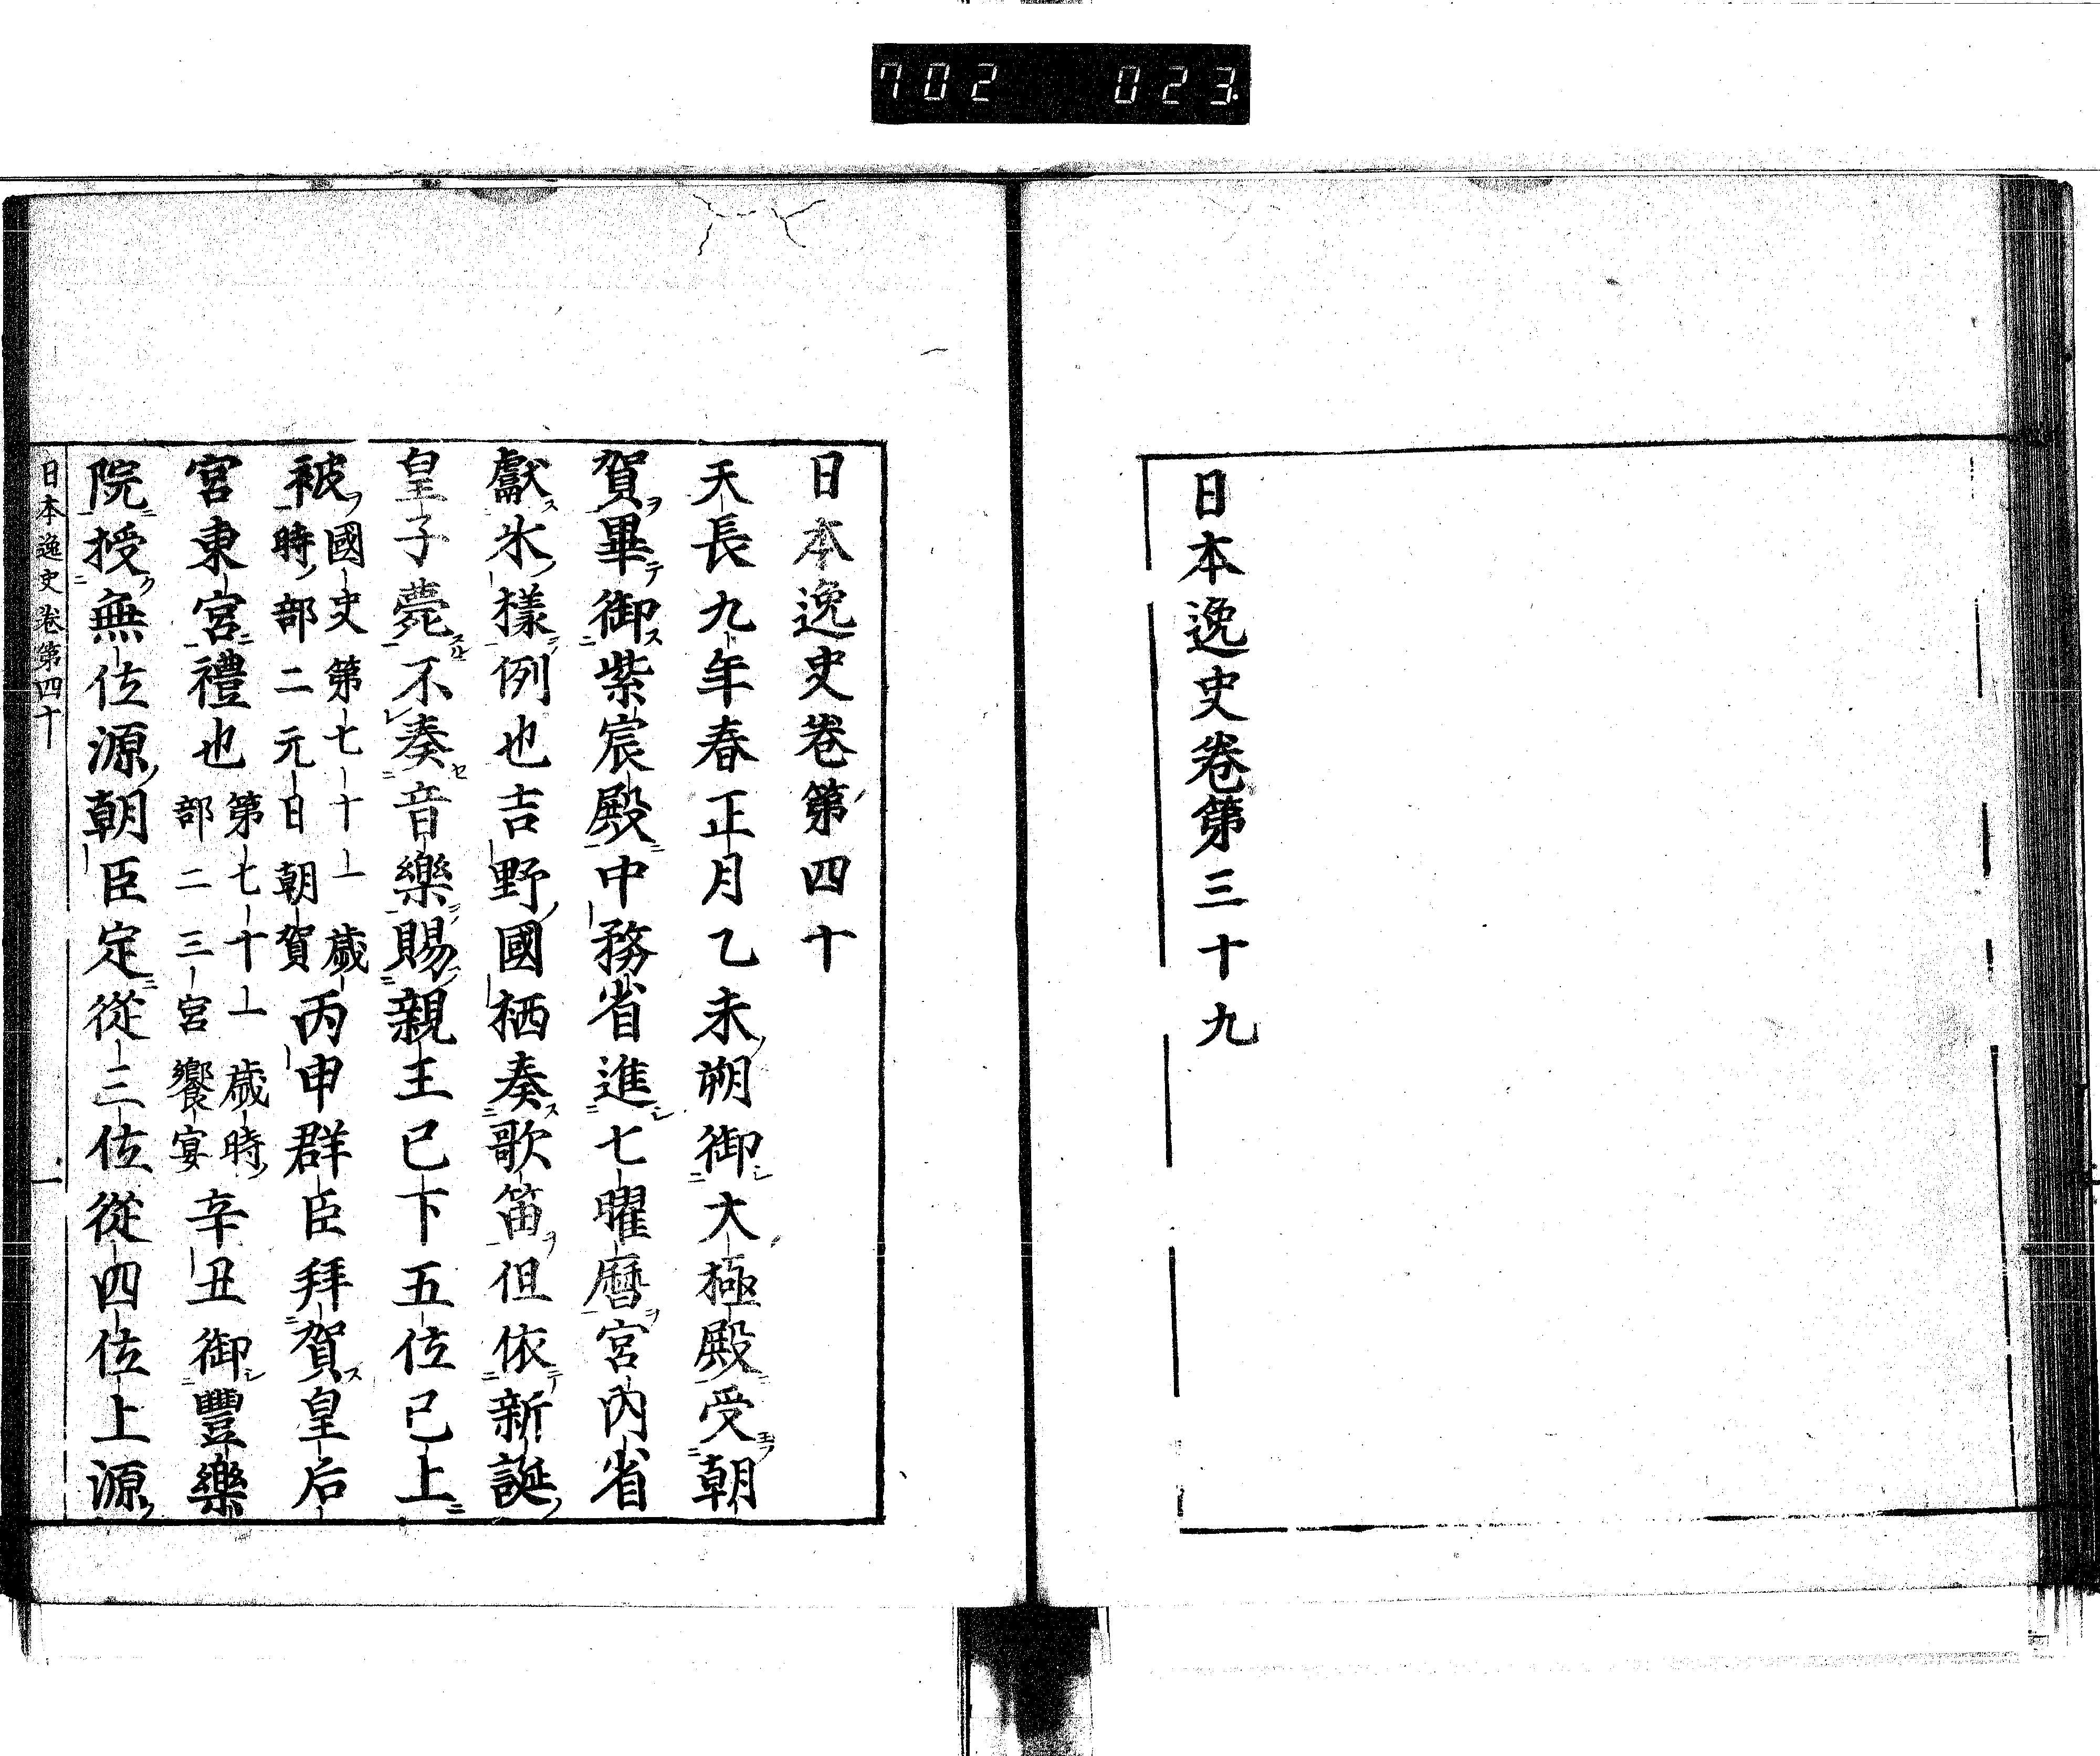 702 023
日本逸史卷第三十九
日本逸史卷第四十
天長九年春正月乙未朔御大極殿受朝
賀畢御紫宸殿中務省進七曜曆宮內省
獻氷樣例也吉野國栖奏歌笛但依新誕
皇子薨不奏音樂賜親王已下五位已上
被
國史第七十一歲
時部二元日朝賀
丙申群臣拜賀皇后
宮東宮禮也
第七十一歲時
部二三宮饗宴
辛丑御豐樂
院授無位源朝臣定從三位從四位上源
日本逸史卷第四十
一